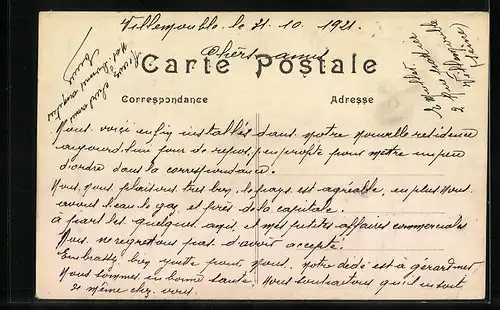 Villemomble le 21. 10. 1921.
Chers amis
Carte Postale
Correspondance
Adresse
Nous voici enfin installés dans notre nouvelle résidence
aujourd'hui jour de repos, j'en profite pour mettre un peu
d'ordre dans la correspondance.
Nous nous plaisons très bien, le pays est agréable, en plus nous
avons l'eau le gaz et près de la capitale.
à part les quelques amis, et mes petites affaires commerciales
Nous ne regrettons pas d'avoir accepté.
Embrassez bien yvette pour nous. Notre dédé est à gérardmer
Nous sommes en bonne santé, Nous souhaitons qu'il en soit
de même chez vous.